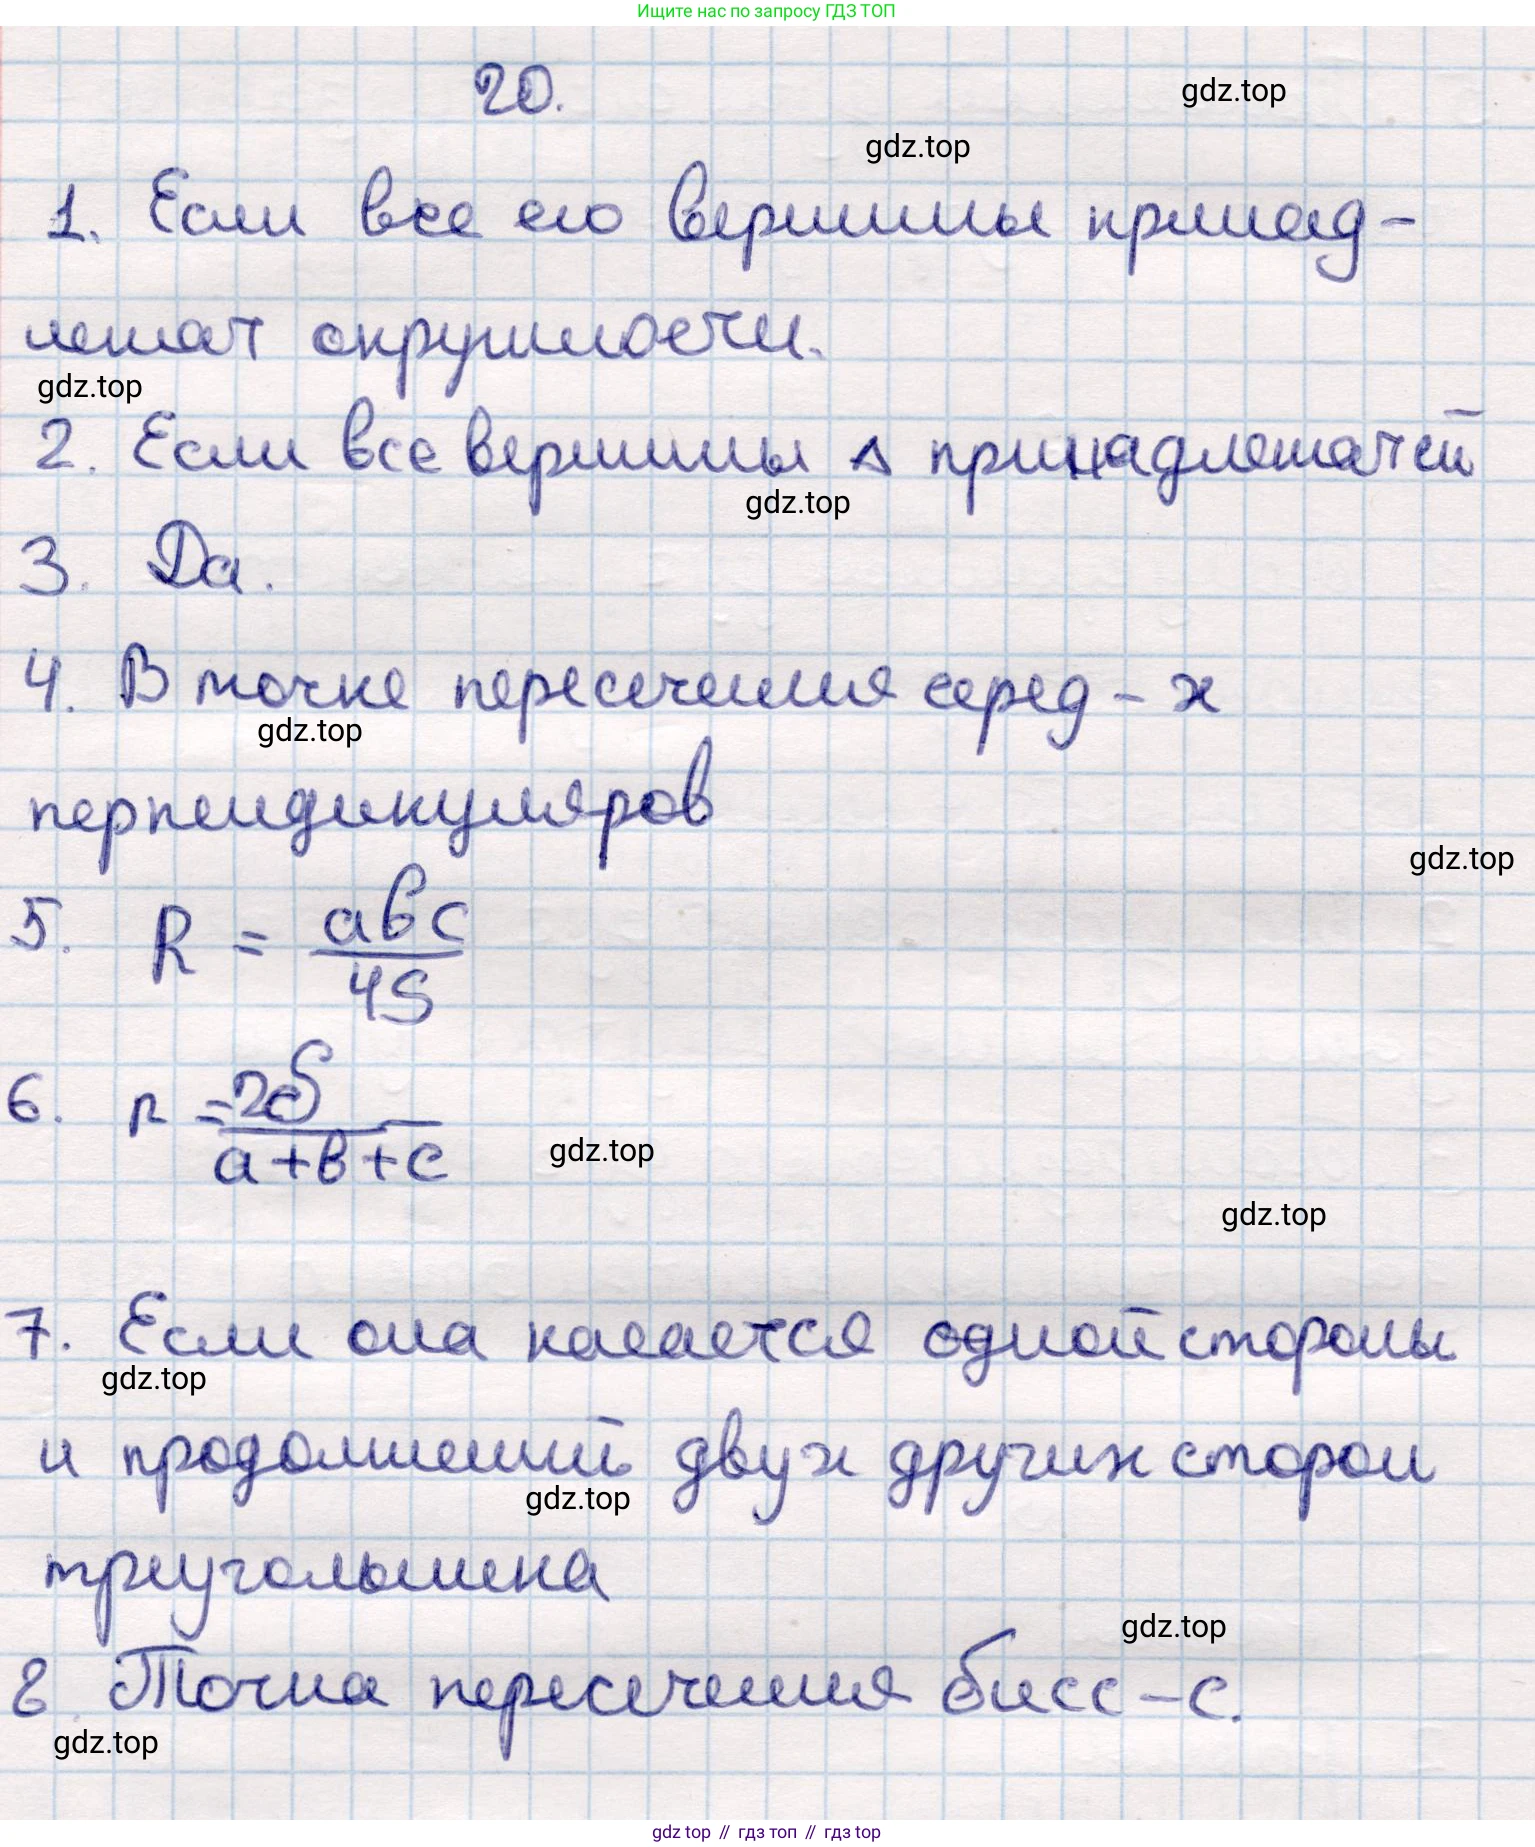 Ищите нас по запросу ГДЗ ТОП
20.
gdz.top
gdz.top
1. Если все его вершины принад-
лежат окружности.
gdz.top
2. Если все вершины Δ принадлежат ей
gdz.top
3. Да.
4. В точке пересечения серед-х
gdz.top
перпендикуляров
gdz.top
5. R = abc/4S
6. r = 2S/a+b+c
gdz.top
gdz.top
7. Если она касается одной стороны
gdz.top
и продолжений двух других сторон
gdz.top
треугольника
gdz.top
8. Точка пересечения бисс-с.
gdz.top
gdz top // гдз топ // гдз top